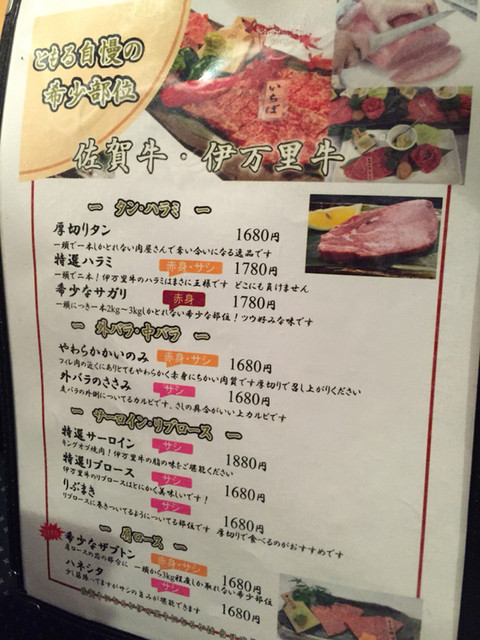 ともる自慢の
希少部位
いちぼ
佐賀牛・伊万里牛
ー タン・ハラミ ー
厚切りタン 1680円
一頭で一本しかとれない肉屋さんで奪い合いになる逸品です
特選ハラミ 赤身・サシ 1780円
一頭で二本！伊万里牛のハラミはまさに王様です どこにも負けません
希少なサガリ 赤身 1780円
一頭につき一本2kg～3kgしかとれない希少な部位！ツウ好みな味です
ー 外バラ・中バラ ー
やわらかかいのみ 赤身・サシ 1680円
フィレ肉の近くにありとてもやわらかく赤身にちかい肉質です厚切りで召し上がりください
外バラのささみ サシ 1680円
友バラの外側についてるカルビです、さしの具合がいい上カルビです
ー サーロイン・リブロース ー
特選サーロイン サシ 1880円
キングオブ焼肉！伊万里牛の脂の味をご堪能ください
特選リブロース サシ 1680円
伊万里牛のリブロースはとにかく美味しいです！
りぶまき サシ 1680円
リブロースに巻きついてるようについてる部位です 厚切りで食べるのがおすすめです
ー 肩ロース ー
希少なザブトン 赤身・サシ 1680円
肩ロースの芯の部分に 一頭から3kg程度しか取れない希少部位
ハネシタ サシ 1680円
少し筋張ってますがサシの旨みが堪能できます